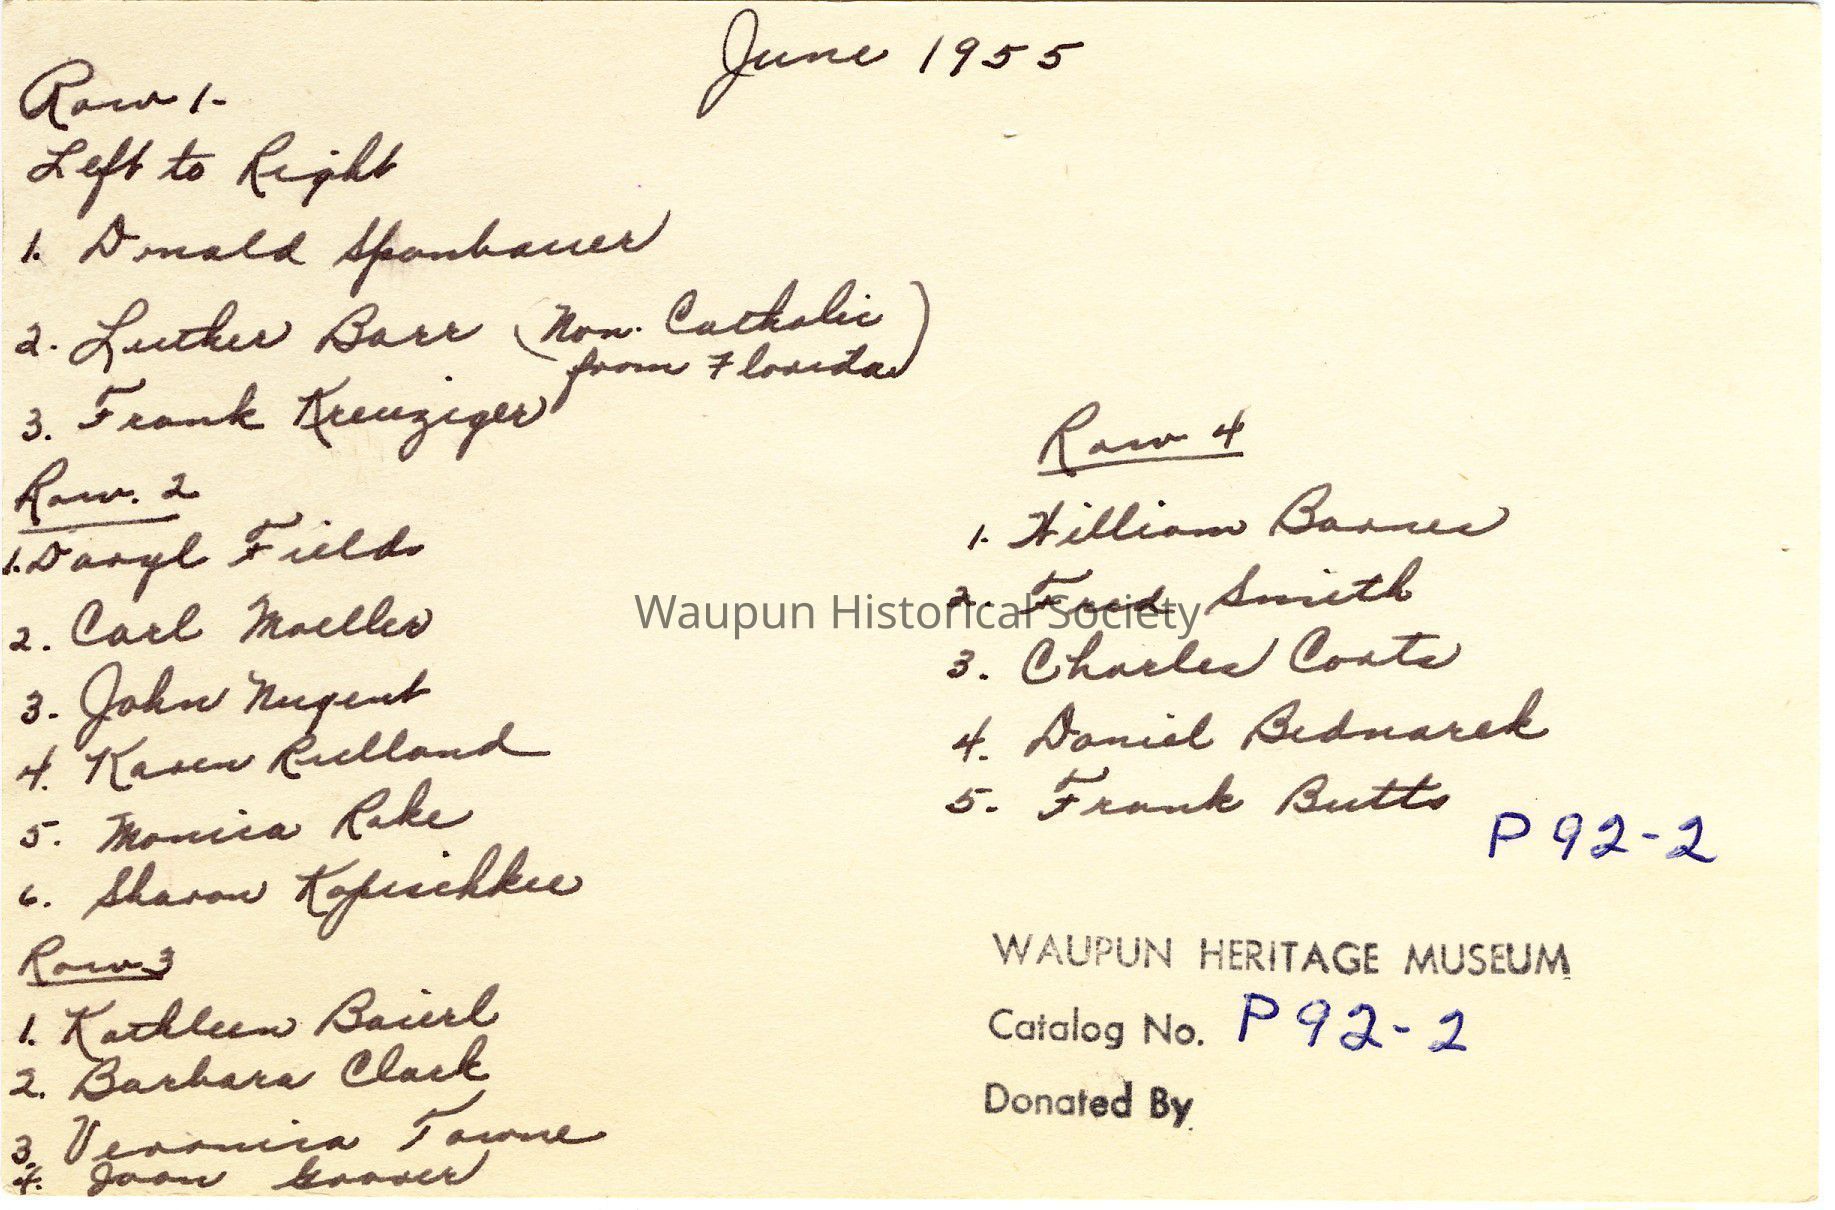 June 1955
Row 1-
Left to Right
1. Donald Sponbauer
2. Luther Barr (Non-Catholic
from Florida)
3. Frank Kreuziger
Row. 2
1. Daryl Fields
2. Carl Moeller
3. John Nugent
4. Karen Rulland
5. Monica Rake
6. Sharon Kopischkee
Row 3
1. Kathleen Baierl
2. Barbara Clark
3. Veronica Towne
4. Joan
Row 4
1. William Barnes
2. Fred Smith
3. Charles Coats
4. Daniel Bednarek
5. Frank Butts
P92-2
Waupun Historical Society
WAUPUN HERITAGE MUSEUM
Catalog No. P92-2
Donated By